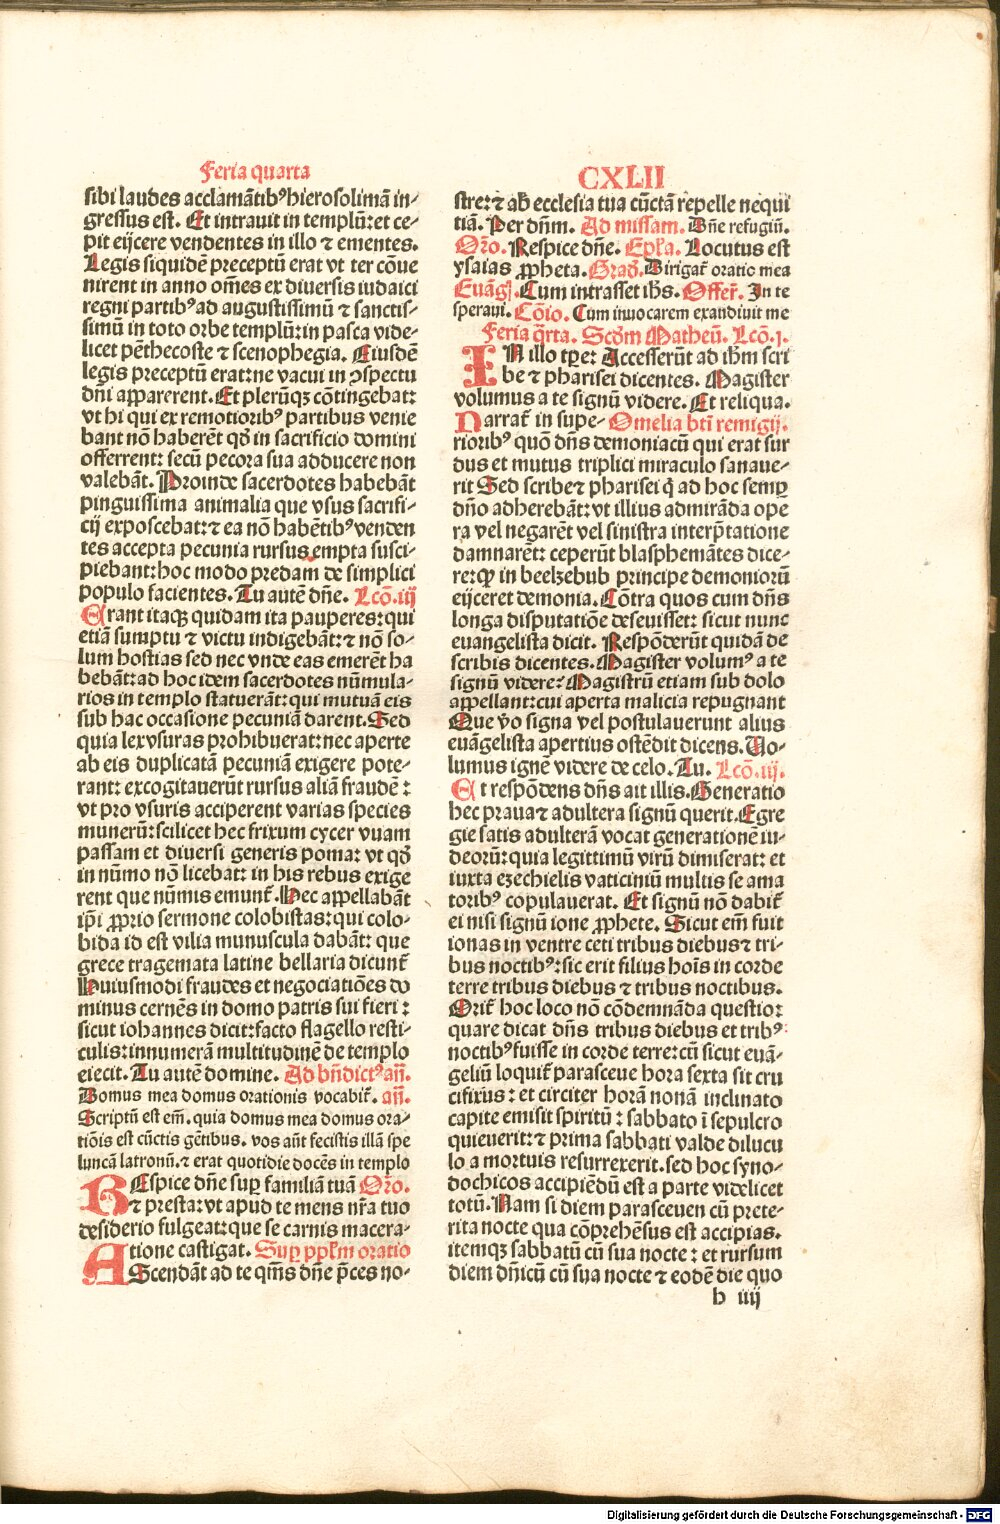 Feria quarta
sibi laudes acclamãtibꝰ hierosolimã in-
gressus est. Et intrauit in templũ: et ce-
pit eijcere vendentes in illo ⁊ ementes.
Legis siquidẽ preceptũ erat vt ter cõue
nirent in anno om̃es ex diuersis iudaici
regni partibꝰ ad augustissimũ ⁊ sanctis-
simũ in toto orbe templũ: in pasca vide-
licet pẽthecoste ⁊ scenophegia. Eiusdẽ
legis preceptũ erat: ne vacui in ꝯspectu
dñi apparerent. Et plerũqꝫ cõtingebat:
vt hi qui ex remotioribꝰ partibus venie
bant nõ haberẽt qð in sacrificio domini
offerrent: secũ pecora sua adducere non
valebãt. Proinde sacerdotes habebãt
pinguissima animalia que vsus sacrifi-
cij exposcebat: ⁊ ea nõ habẽtibꝰ venden
tes accepta pecunia rursus empta susci-
piebant: hoc modo predam de simplici
populo facientes. Tu autẽ dñe. Lcõ. iij
Erant itaqꝫ quidam ita pauperes: qui
etiã sumptu ⁊ victu indigebãt: ⁊ nõ so-
lum hostias sed nec vnde eas emerẽt ha
bebãt: ad hoc idem sacerdotes nũmula-
rios in templo statuerãt: qui mutuã eis
sub hac occasione pecuniã darent. Sed
quia lex vsuras prohibuerat: nec aperte
ab eis duplicatã pecuniã exigere pote-
rant: excogitauerũt rursus aliã fraudẽ:
vt pro vsuris acciperent varias species
munerũ: scilicet hec frixum cycer vuam
passam et diuersi generis poma: vt qð
in nũmo nõ licebat: in his rebus exige
rent que nũmis emunt̃. Nec appellabãt
ip̃i ꝓprio sermone colobistas: qui colo-
bida id est vilia munuscula dabãt: que
grece tragemata latine bellaria dicunt̃
Huiusmodi fraudes et negociatiões do
minus cernẽs in domo patris sui fieri:
sicut iohannes dicit: facto flagello resti-
culis: innumerã multitudinẽ de templo
eiecit. Tu autẽ domine. Ad bñdictꝰ añ.
Domus mea domus orationis vocabit̃. añ.
Scriptũ est em̃. quia domus mea domus ora-
tiõis est cũctis gẽtibus. vos aũt fecistis illã spe
luncã latronũ. ⁊ erat quotidie docẽs in templo
REspice dñe suꝑ familiã tuã Or̃o.
⁊ presta: vt apud te mens nr̃a tuo
desiderio fulgeat: que se carnis macera-
tione castigat. Suꝑ pp̃lm oratio
AScendãt ad te qm̃s dñe p̃ces no-
CXLII
stre: ⁊ ab ecclesia tua cũctã repelle nequi
tiã. Per dñm. Ad missam. Dñe refugiũ.
Or̃o. Respice dñe. Epl̃a. Locutus est
ysaias ꝓpheta. Grað. Dirigat̃ oratio mea
Euãgl̃. Cum intrasset ih̃s. Offer̃. In te
speraui. Cõio. Cum inuocarem exaudiuit me
Feria q̃rta. Scðm Matheũ. Lcõ. j.
IN illo tꝑe: Accesserũt ad ih̃m scri
be ⁊ pharisei dicentes. Magister
volumus a te signũ videre. Et reliqua.
Narrat̃ in supe- Omelia bt̃i remigij.
rioribꝰ quõ dñs demoniacũ qui erat sur
dus et mutus triplici miraculo sanaue-
rit Sed scribe ⁊ pharisei q̃ ad hoc semꝑ
dño adherebãt: vt illius admirãda ope
ra vel negarẽt vel sinistra interp̃tatione
damnarẽt: ceperũt blasphemãtes dice-
re: ꝙ in beelzebub principe demoniorũ
eijceret demonia. Cõtra quos cum dñs
longa disputatiõe deseuisset: sicut nunc
euangelista dicit. Respõderũt quidã de
scribis dicentes. Magister volumꝰ a te
signũ videre: Magistrũ etiam sub dolo
appellant: cui aperta malicia repugnant
Que ṽo signa vel postulauerunt alius
euãgelista apertius ostẽdit dicens. Uo-
lumus ignẽ videre de celo. Tu. Lcõ. ij.
Et respõdens dñs ait illis. Generatio
hec praua ⁊ adultera signũ querit. Egre
gie satis adulterã vocat generationẽ iu-
deorũ: quia legittimũ virũ dimiserat: et
iuxta ezechielis vaticiniũ multis se ama
toribꝰ copulauerat. Et signũ nõ dabit̃
ei nisi signũ ione ꝓphete. Sicut em̃ fuit
ionas in ventre ceti tribus diebus ⁊ tri-
bus noctibꝰ: sic erit filius hoĩs in corde
terre tribus diebus ⁊ tribus noctibus.
Orit̃ hoc loco nõ cõdemnãda questio:
quare dicat dñs tribus diebus et tribꝰ
noctibꝰ fuisse in corde terre: cũ sicut euã-
geliũ loquit̃ parasceue hora sexta sit cru
cifixus: et circiter horã nonã inclinato
capite emisit spiritũ: sabbato ĩ sepulcro
quieuerit: ⁊ prima sabbati valde dilucu
lo a mortuis resurrexerit. sed hoc syno-
dochicos accipiẽdũ est a parte videlicet
totũ. Nam si diem parasceuen cũ prete-
rita nocte qua cõprehẽsus est accipias.
itemqꝫ sabbatũ cũ sua nocte: et rursum
diem dñicũ cũ sua nocte ⁊ eodẽ die quo
b iiij
Digitalisierung gefördert durch die Deutsche Forschungsgemeinschaft - DFG